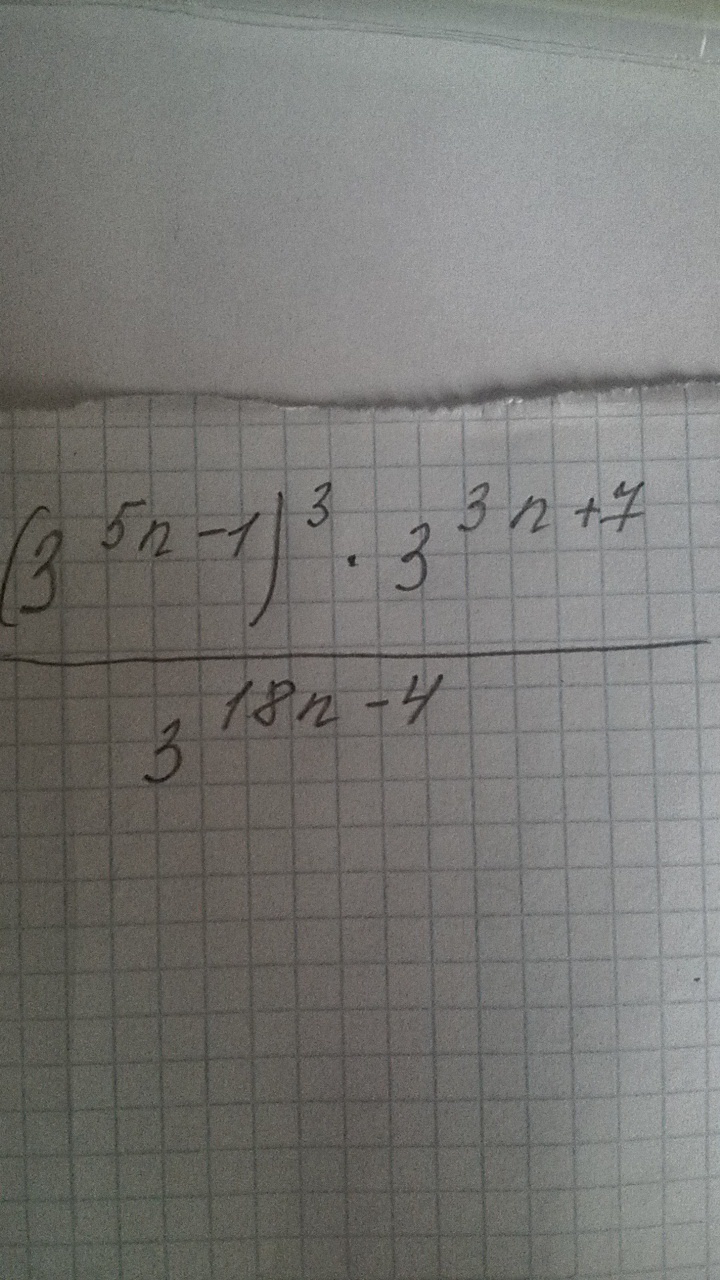 (3^{5n-1})^3 · 3^{3n+7}
3^{18n-4}